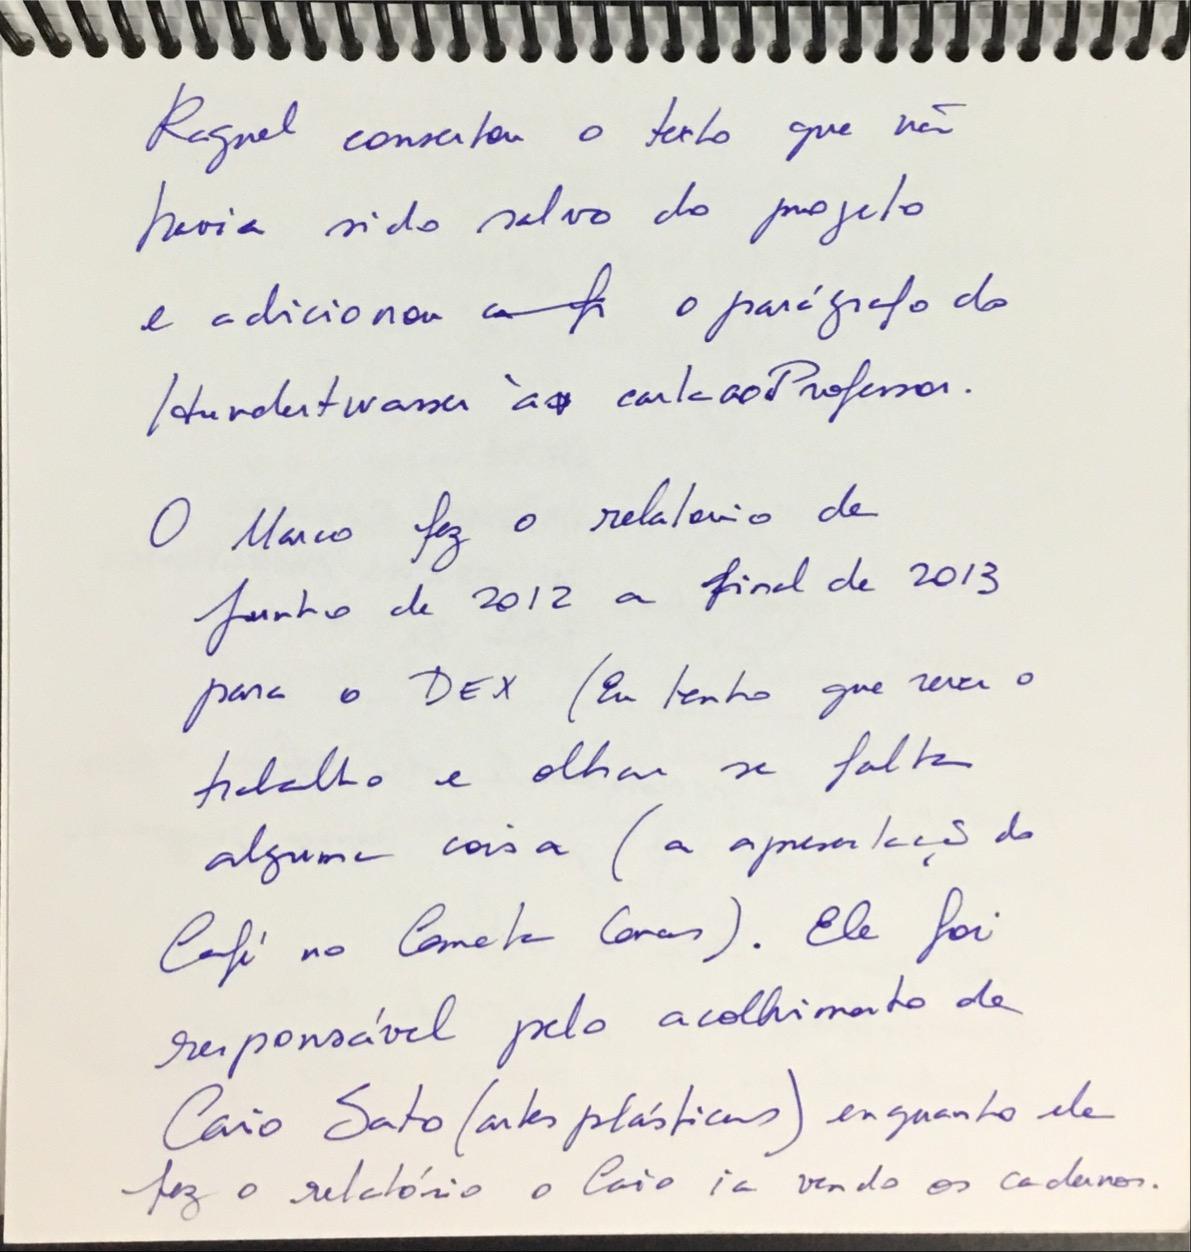 Raquel consertou o texto que não
havia sido salvo do projeto
e adicionou o parágrafo do
Hundertwasser às carta ao Professor.
O Marco fez o relatorio de
junho de 2012 a final de 2013
para o DEX (Eu tenho que rever o
trabalho e olhar se falta
alguma coisa (a apresentação do
Café no Cometa Cenas). Ele foi
responsável pelo acolhimento de
Caio Sato (artes plásticas) enquanto ele
fez o relatório o Caio ia vendo os cadernos.